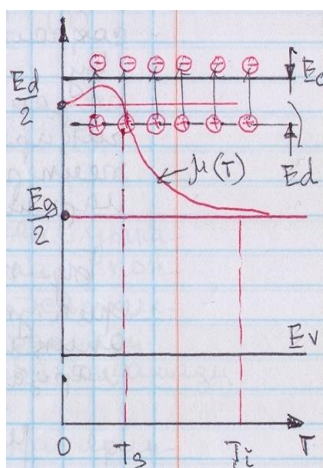 Ec
Ed
2
Ed
μ(T)
Eg
2
Ev
0
Ts
Ti
T